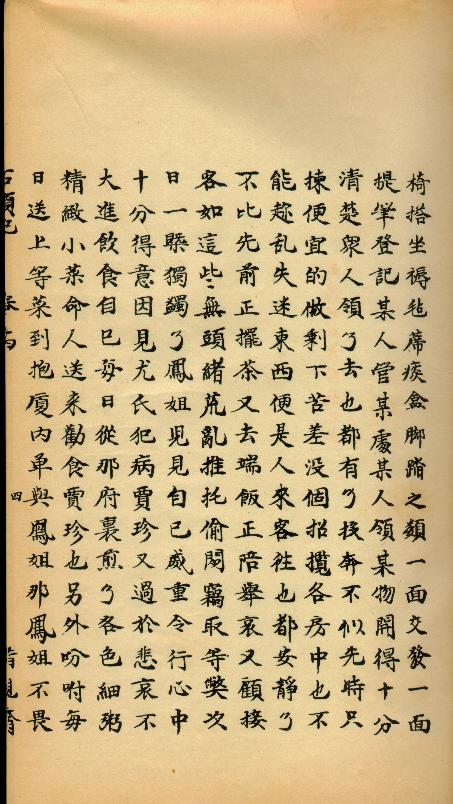 椅搭坐褥毡蓆痰盒脚踏之類一面交發一面
提筆登記某人管某處某人領某物開得十分
清楚衆人領了去也都有了投奔不似先時只
揀便宜的做剩下苦差没個招攬各房中也不
能趂乱失迷東西便是人來客徃也都安靜了
不比先前正擺茶又去端飯正陪舉哀又顧接
客如這些無頭緒荒亂推托偷閑竊取等獘次
日一槩獨蠲了鳳姐児見自己威重令行心中
十分得意因見尤氏犯病賈珍又過於悲哀不
大進飲食自己每日從那府裏煎了各色細粥
精緻小菜命人送來勸食賈珍也另外吩咐每
日送上等菜到抱厦内单與鳳姐那鳳姐不畏
石頭記 卷 四